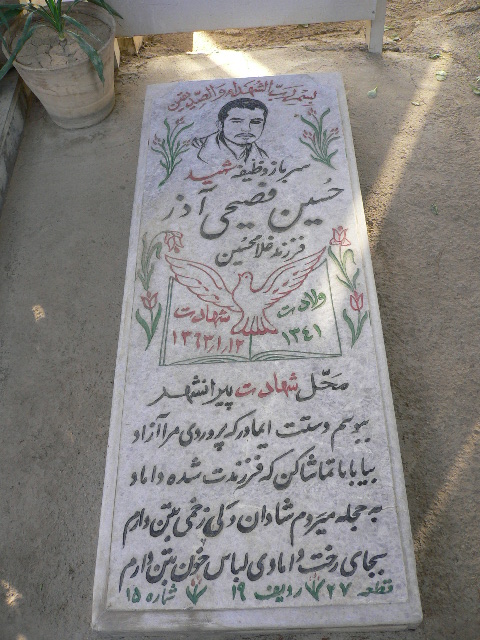 بسم رب الشهداء والصدیقین
سرباز وظیفه شهید
حسین فصیحی آذر
فرزند غلامحسین
ولادت
۱۳۴۱
شهادت
۱۳۶۳,۱,۱۲
محل شهادت پیرانشهر
ببوسم دستت ایمادر که پروردی مرا آزاد
بیا بابا تماشا کن که فرزندت شده داماد
به حجله میروم شادان ولی زخمی بتن دارم
بجای رخت دامادی لباس خون بتن دارم
قطعه ۲۷ ردیف ۱۹ شماره ۱۵